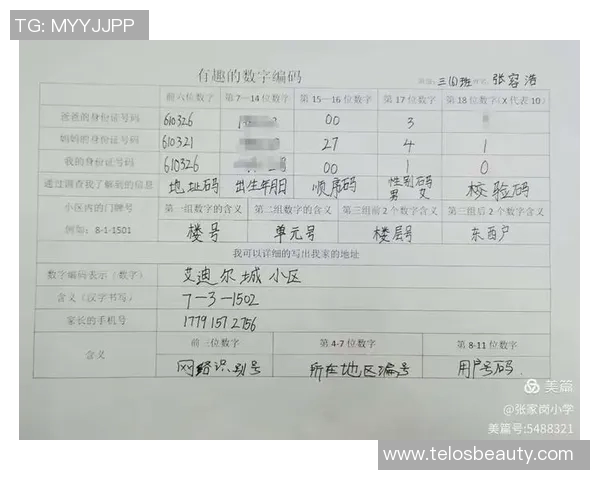 TG: MYYJJPP
有趣的数字编码
班级:三(6)班 张容浩
前六位数字 第7—14位数字 第15—16位数字 第17位数字 第18位数字(X代表10)
爸爸的身份证号码 610326 00 3
妈妈的身份证号码 610321 27 4 1
我的身份证号码 610326 00 1 0
通过调查我了解到的信息 地址码 出生年月日 顺序码 性别码 男 女 校验码
小区内的门牌号 第一组数字的含义 第二组数字的含义 第三组前2个数字含义 第三组后2个数字含义
例如:8-1-1501 楼号 单元号 楼层号 东西户
我可以详细的写出我家的地址
数字编码表示(数字) 艾迪尔城小区
含义(汉字书写) 7-3-1502
家长的手机号 17791572756
前三位数字 第4-7位数字 第8-11位数字
含义 网络识别号 所在地区编号 用户号码.
美篇
@张家岗小学
美篇号:5488321
www.telosbeauty.com